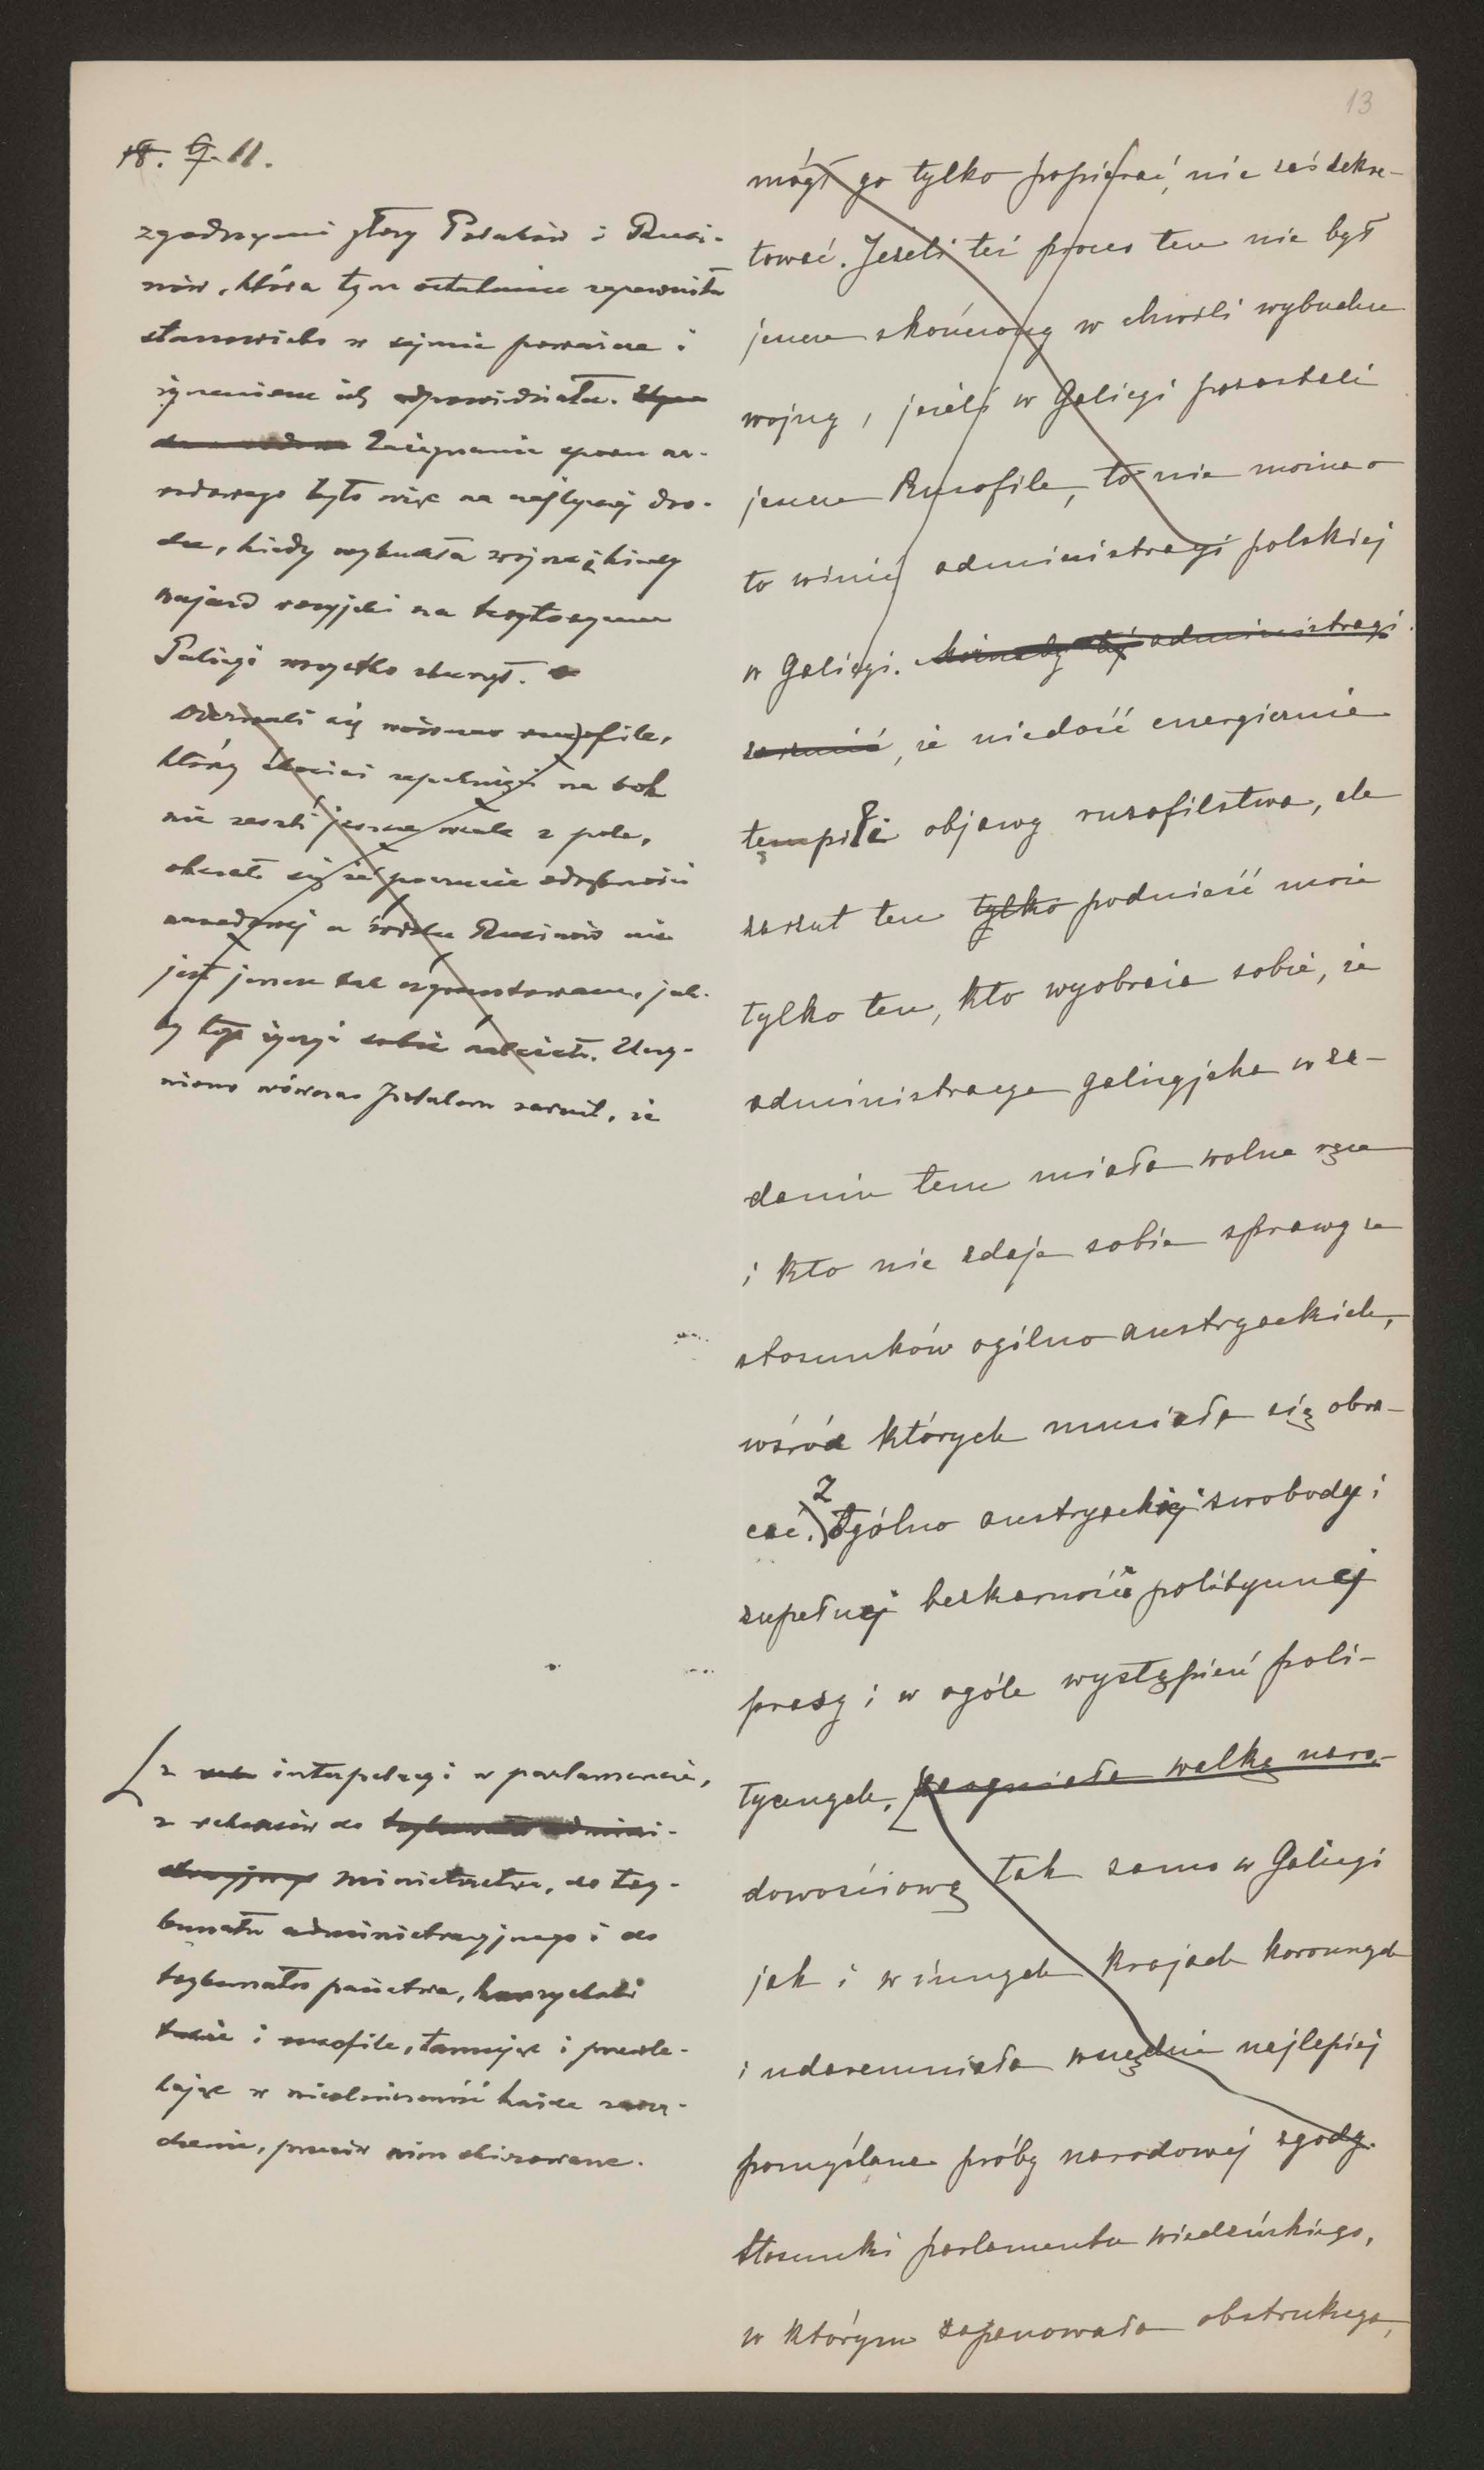 13
18. 9. 11.
zgodnymi głosy Polaków i Rusi-
nów, która tym ostatnim zapewniła
stanowisko w sejmie poważne i
życzeniom ich odpowiedziała.
Zażegnanie sporu na-
rodowego było więc na najlepszej dro-
dze, kiedy wybuchła wojna i kiedy
najazd rosyjski na terytoryum
Galicyi wszystko zburzył.
Odezwali się wówczas rusofile,
którzy chociaż zepchnięci na bok
nie zeszli jeszcze wcale z pola,
okazało się że poczucie odrębności
narodowej u Rusinów nie
jest jeszcze tak ugruntowane, jak-
by tego życzyć sobie należało. Uczy-
niono wówczas Polakom zarzut, że
z interpelacyi w parlamencie,
z rekursów do
ministerstwa, do try-
bunału administracyjnego i do
trybunału państwa, korzystali
także i rusofile, tamując i przewle-
kając w nieskończoność każde zarzą-
dzenie, przeciw nim skierowane.
mógł go tylko popierać, nie zaś dekre-
tować. Jeżeli też proces ten nie był
jeszcze skończony w chwili wybuchu
wojny, jeżeli w Galicyi pozostali
jeszcze Rusofile, to nie można o
to winić administracyi polskiej
w Galicyi. Możnaby tej administracyi
zarzucić, że niedość energicznie
tępiła objawy rusofilstwa, ale
zarzut ten tylko podnieść może
tylko ten, kto wyobraża sobie, że
administracya galicyjska w za-
daniu tem miała wolne ręce
i kto nie zdaje sobie sprawy ze
stosunków ogólno austryackich,
wśród których musiała się obra-
cać. Z ogólno austryackiej swobody i
zupełnej bezkarności politycznej
prasy i w ogóle wystąpień poli-
tycznych, rozogniała walkę naro-
dowościową tak samo w Galicyi
jak i w innych krajach koronnych
i udaremniała wszędzie najlepiej
pomyślane próby narodowej zgody.
Stosunki parlamentu wiedeńskiego,
w którym zapanowała obstrukcya,